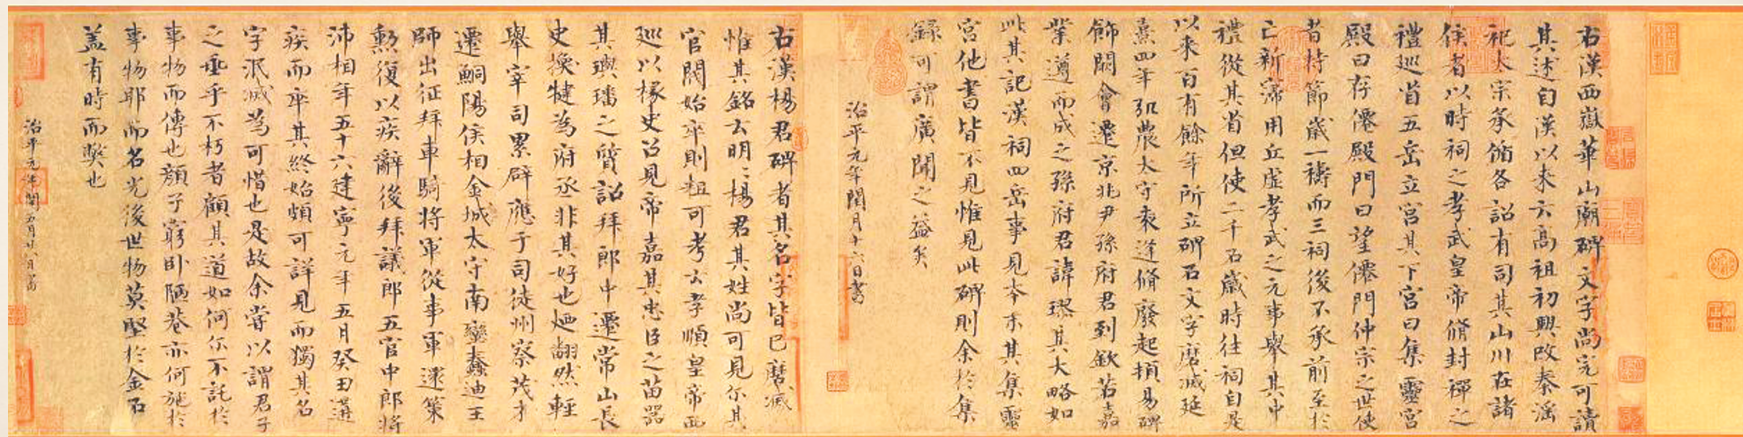 右漢西嶽華山廟碑文字尚完可讀
其述自漢以來云高祖初興改秦淫
祀太宗承循各詔有司其山川在諸
侯者以時祠之孝武皇帝脩封禪之
禮巡省五岳立宮其下宮曰集靈宮
殿曰存僊殿門曰望僊門仲宗之世使
者持節歲一禱而三祠後不承前至於
亡新寖用丘虛孝武之元事舉其中
禮從其省但使二千石歲時往祠自是
以來百有餘年所立碑石文字磨滅延
熹四年弘農太守袁逢脩廢起頓易碑
飾闕會遷京兆尹孫府君到欽若嘉
業遵而成之孫府君諱璆其大略如
此其記漢祠四岳事見本末其集靈
宮他書皆不見惟見此碑則余於集
錄可謂廣聞之益矣
治平元年閏月十六日書
右漢楊君碑者其名字皆已磨滅
惟其銘云明明楊君其姓尚可見尔其
官閥始卒則粗可考云孝順皇帝西
巡以掾史召見帝嘉其忠臣之苗器
其璵璠之質詔拜郎中遷常山長
史換犍為府丞非其好也迺翻然輕
舉宰司累辟應于司徒州察茂才
遷鮦陽侯相金城太守南蠻蠢迪王
師出征拜車騎將軍從事軍還策
勳復以疾辭後拜議郎五官中郎將
沛相年五十六建寧元年五月癸丑遘
疾而卒其終始頗可詳見而獨其名
字泯滅為可惜也是故余嘗以謂君子
之垂乎不朽者顧其道如何尔不託於
事物而傳也顏子窮臥陋巷亦何施於
事物耶而名光後世物莫堅於金石
盖有時而弊也
治平元年閏五月廿八日書